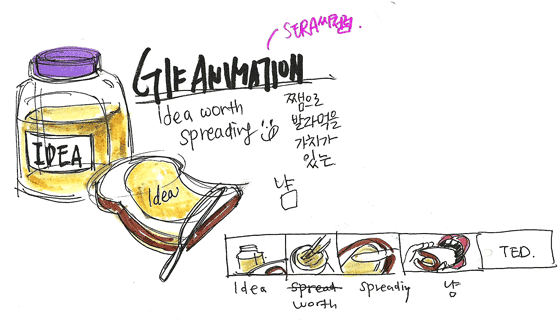 GIF ANIMATION
Idea worth
spreading
쨈으로
발라먹을
가치가
있는
냠
IDEA
Idea
TED.
Idea
Spread
worth
spreading
냠